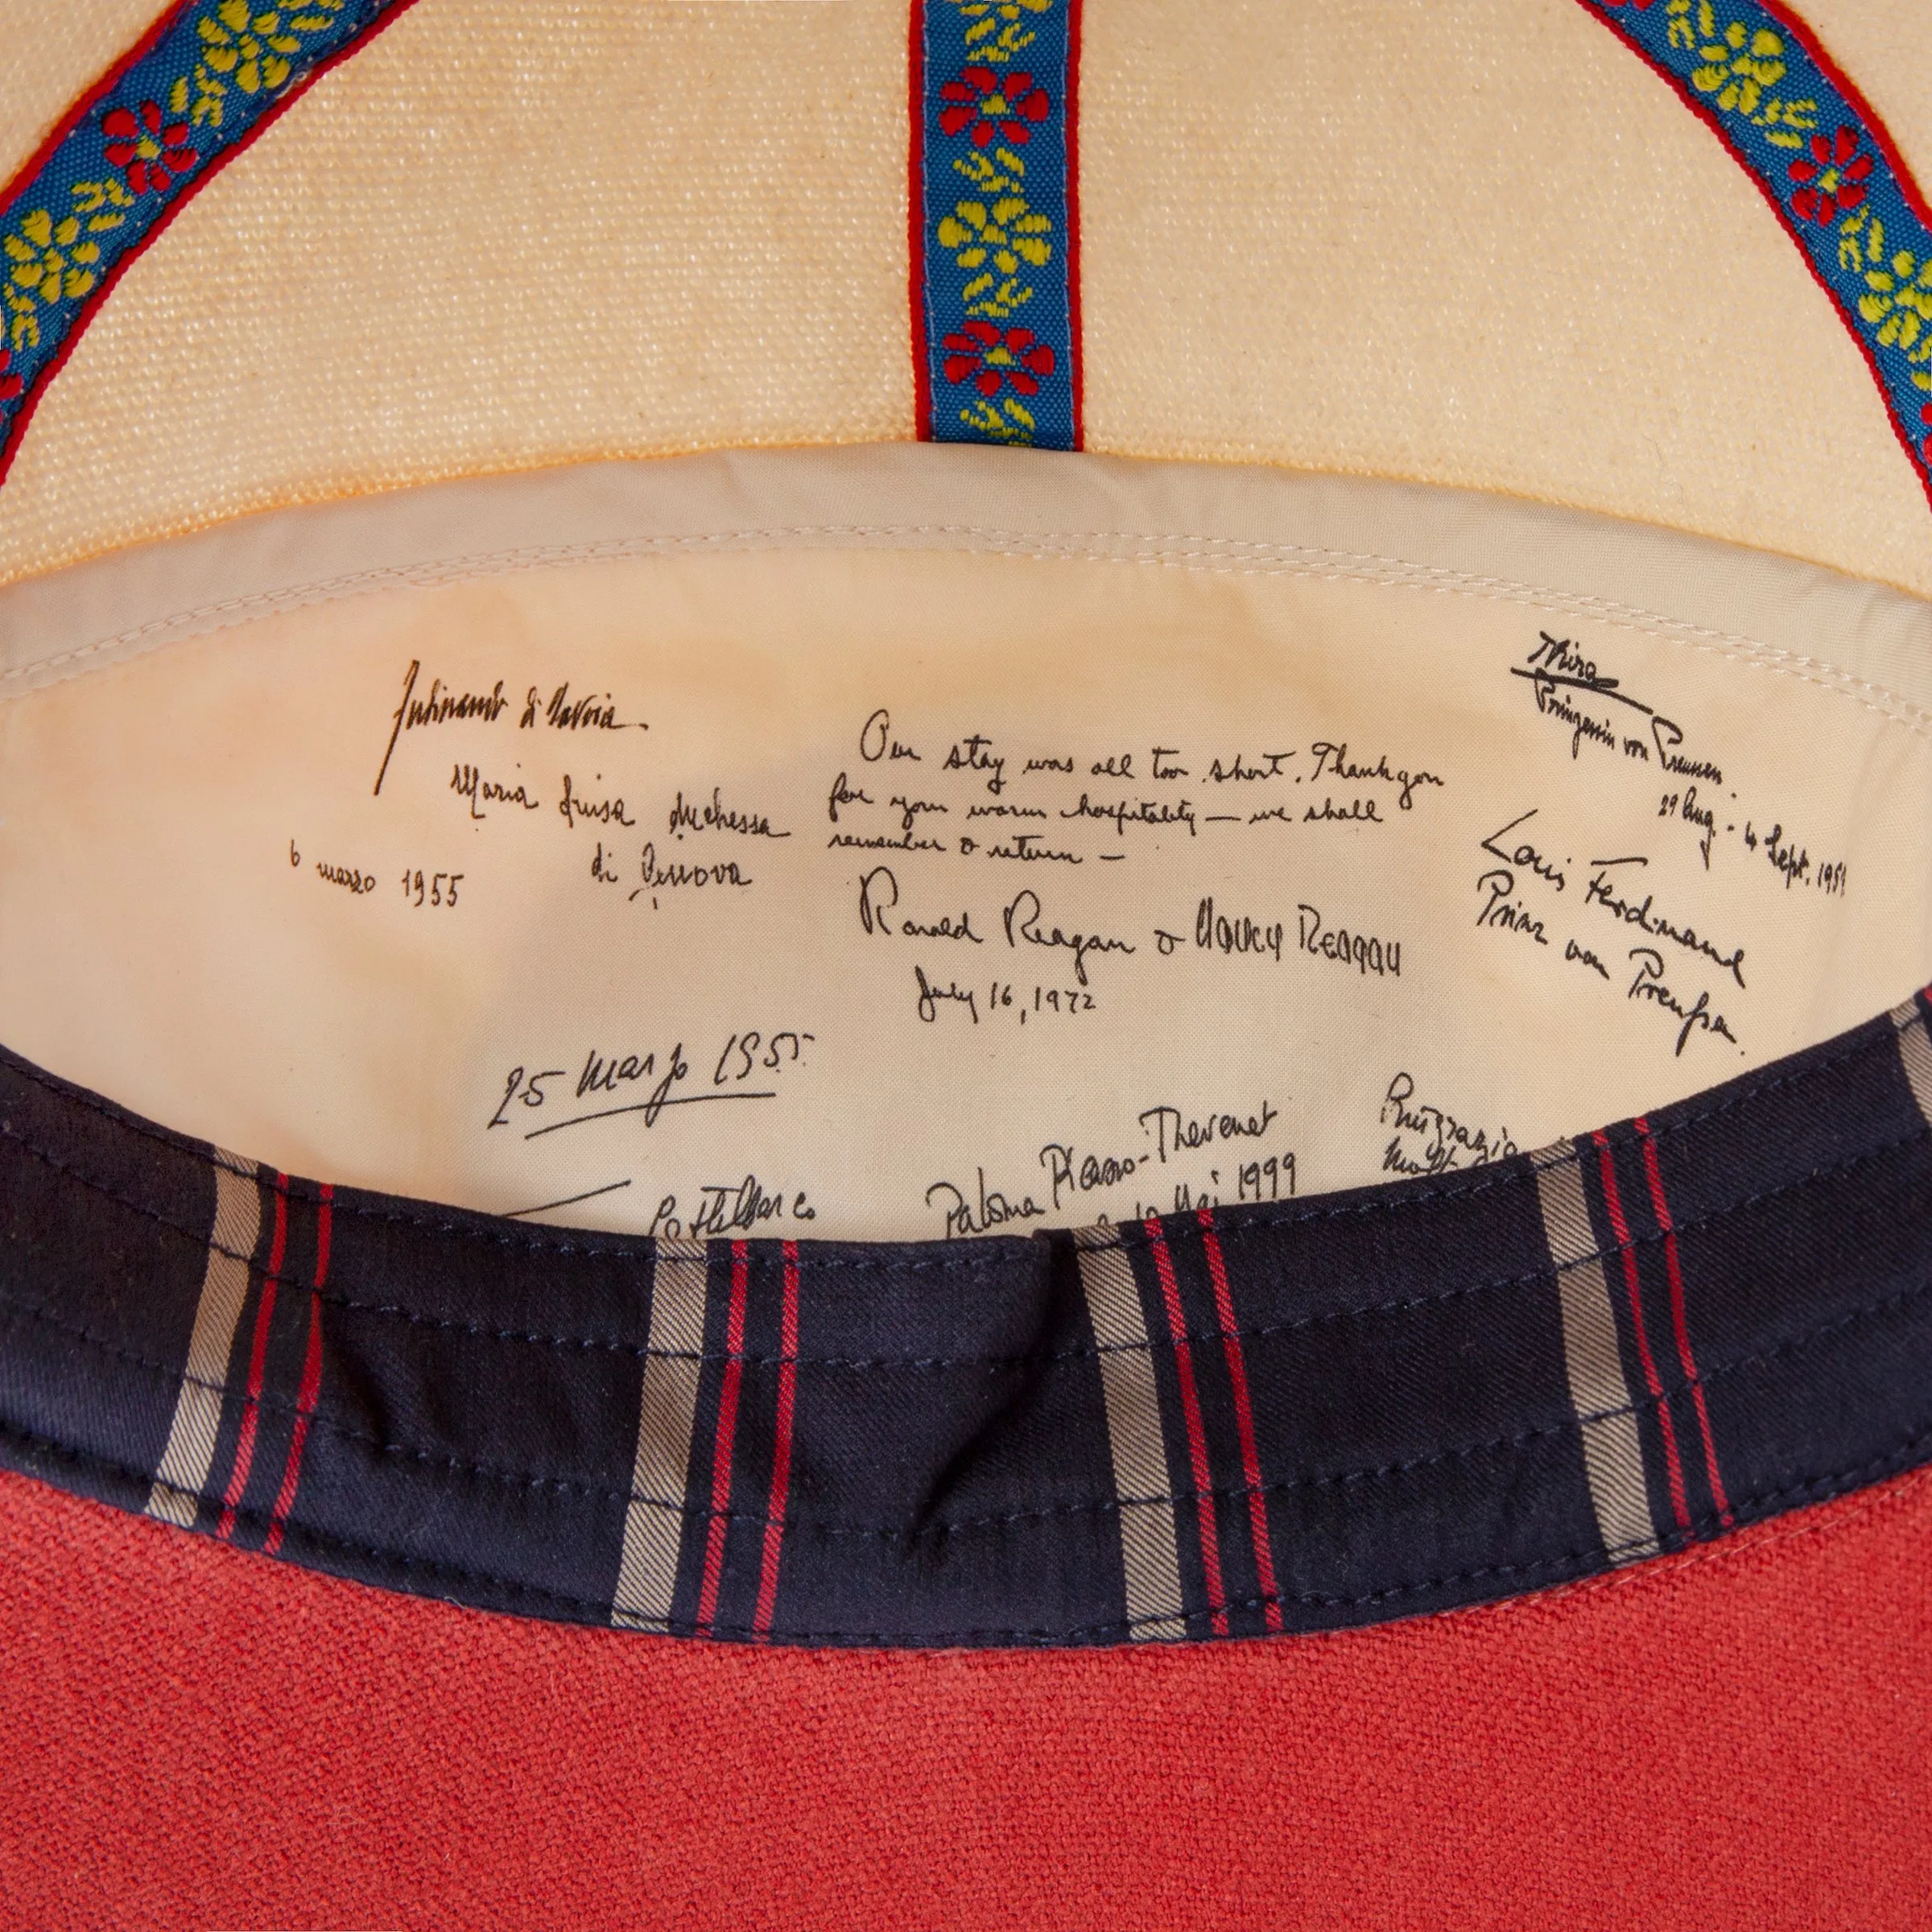 Ferdinando di Savoia
Maria Luisa duchessa
di Genova
6 marzo 1955
Our stay was all too short. Thank you
for your warm hospitality — we shall
remember & return —
Ronald Reagan & Nancy Reagan
July 16, 1972
Kira
Prinzessin von Preussen.
29 Aug. - 4 Sept. 195
Louis Ferdinand
Prinz von Preußen.
25 marzo 1955
Castelbarco
Paloma Picasso-Thevenet
Mai 1999